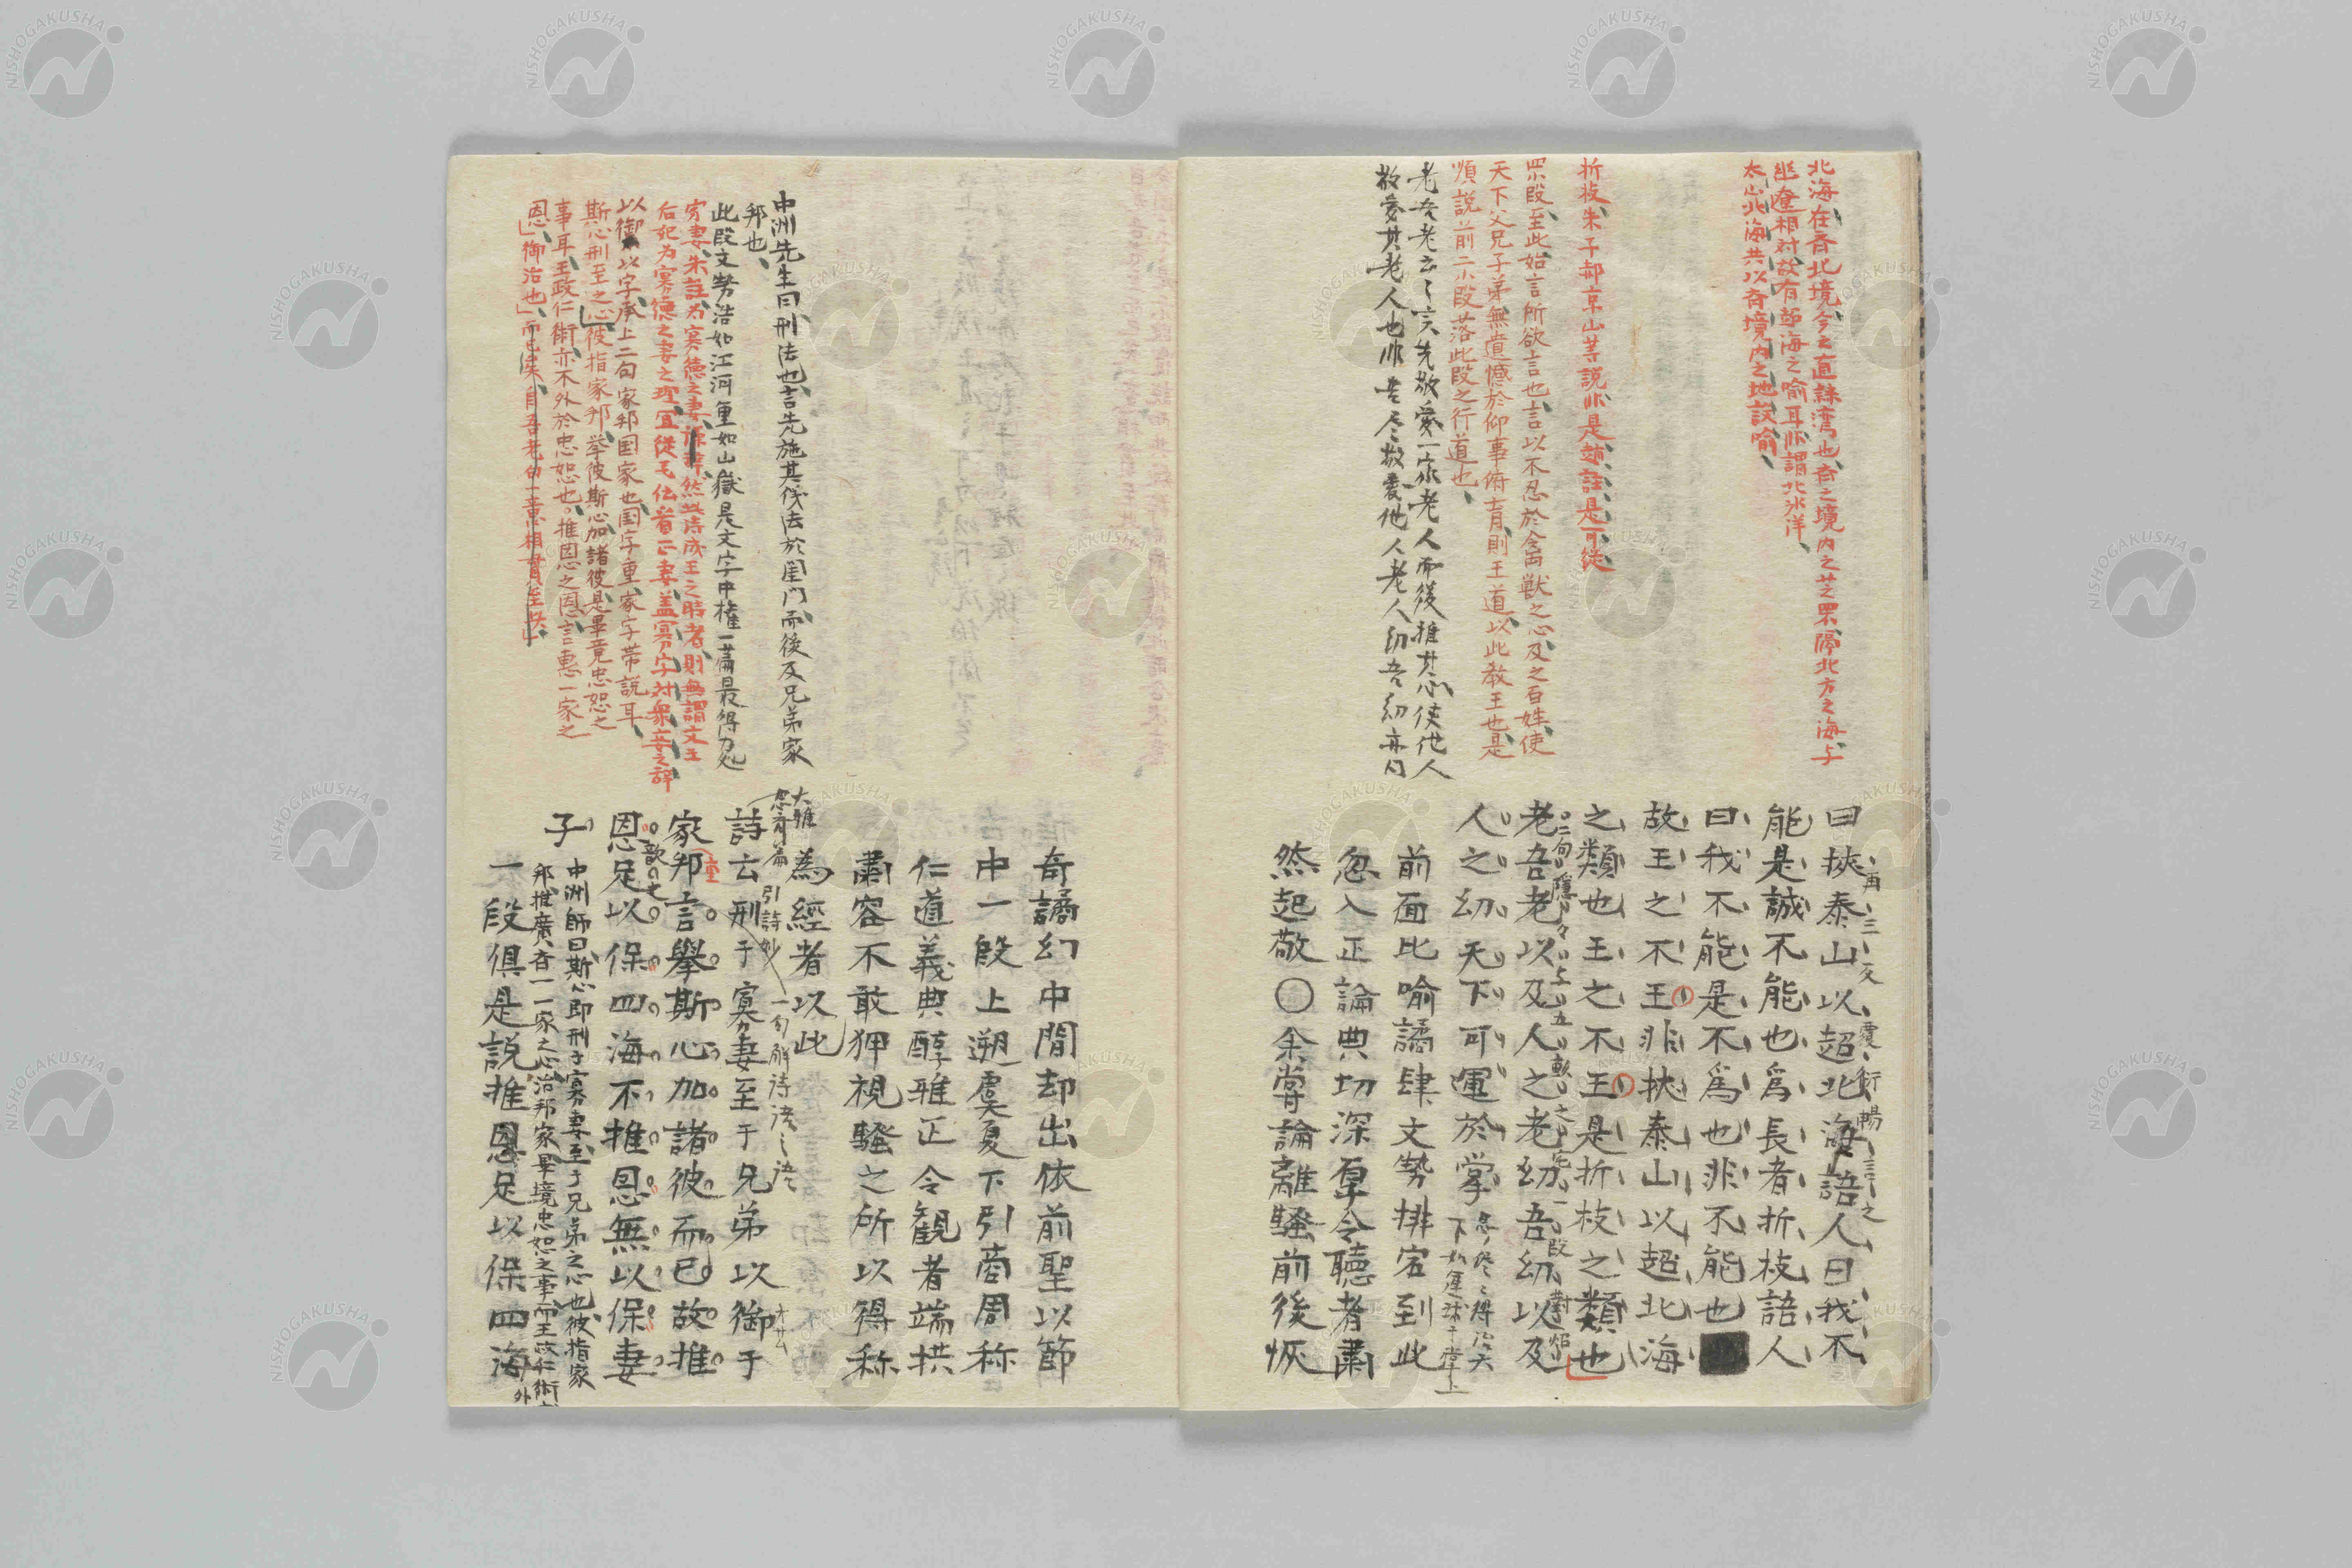 北海在斉北境今之直隷湾也斉之境内之芝罘隔北方之海与
遼相対故有超海之喩耳非謂北氷洋
太山北海共以斉境内之地設喩
折枝朱子郝京山等説非是趙註是可従
罘段至此始言所欲言也言以不忍於禽獣之心及之百姓使
天下父兄子弟無遺憾於仰事俯育則王道以此教王也是
順説前二小段落此段之行道也
老吾老云々言先敬愛一家老人而後推其心使他人
敬愛其老人也非吾尽敬愛他人老人幼吾幼亦同
曰挾泰山以超北海語人曰我不
再三反覆衍暢言之
能是誠不能也爲長者折枝語人
曰我不能是不爲也非不能也
故王之不王非挾泰山以超北海
之類也王之不王是折枝之類也
老吾老以及人之老幼吾幼以及
人之幼天下可運於掌
下如運球于掌上
前面比喻譎肆文勢排宕到此
忽入正論典切深厚令聽者肅
然起敬○余嘗論離騷前後恢
中洲先生曰刑法也言先施其儀法於閨門而後及兄弟家
邦也
此段文勢浩如江河重如山嶽是文字中権一篇最得力処
寡妻朱註為寡徳之妻 然此詩成王之時者則無謂文王
后妃为寡徳之妻之理宜従毛伝首云妻盖寡字対衆妾之辞
以御 以字承上二句家邦国家也国字重家字帯説耳
斯心刑至之心彼指家邦举彼斯心加諸彼是畢竟忠恕之
事耳王政仁術亦不外於忠恕也推恩之恩言恵一家之
恩御治也而已矣自吾老句一意相貫至此
奇譎幻中間却出依前聖以節
中一段上遡虞夏下引商周称
仁道義典醇雅正令観者端拱
肅容不敢狎視騷之所以得称
為經者以此
大雅
思斉篇
引詩妙
一句解詩法之語
詩云刑于寡妻至于兄弟以御于
家邦言擧斯心加諸彼而已故推
恩足以保四海不推恩無以保妻
子
中洲師曰斯心即刑于寡妻至于兄弟之心也彼指家
邦推廣吾一家之心治邦家畢境忠恕之事而王政仁術
一段俱是説推恩足以保四海